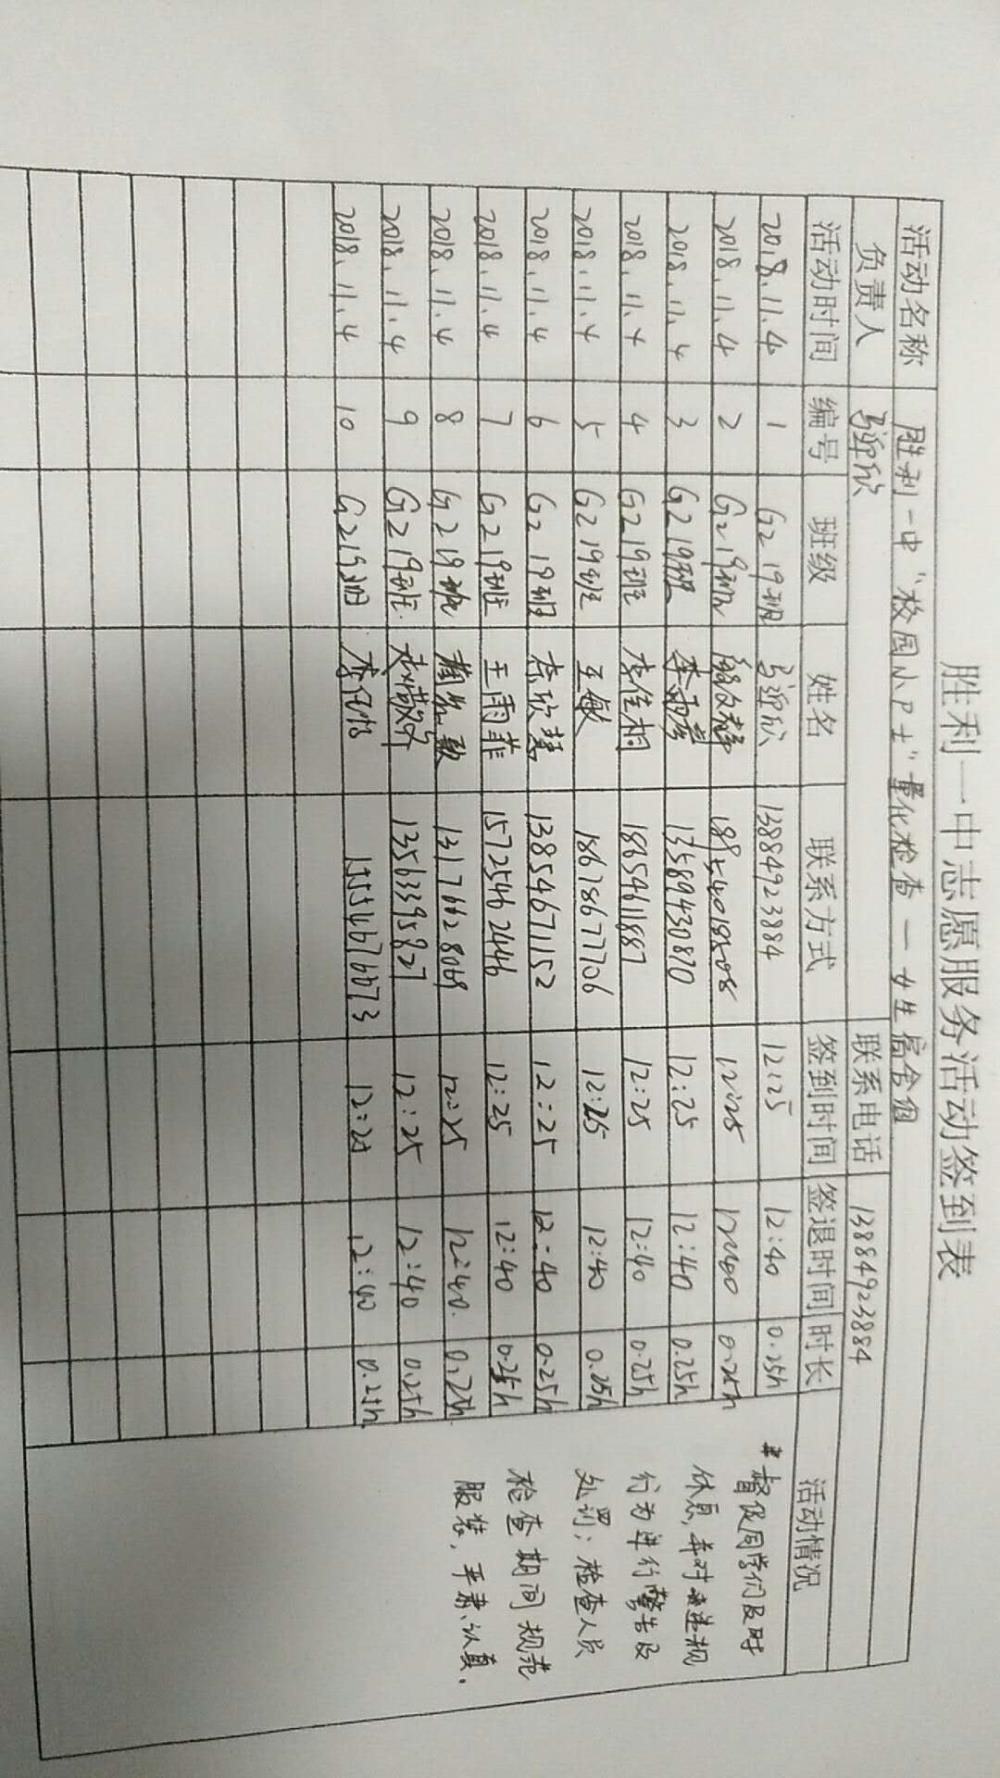 胜利一中志愿服务活动签到表
活动名称 胜利一中"校园小卫士"量化检查—女生宿舍组
负责人 马迎欣 联系电话 13884923884
活动时间 编号 班级 姓名 联系方式 签到时间 签退时间 时长 活动情况
2018.11.4 1 G219班 马迎欣 13884923884 12:25 12:40 0.25h
2018.11.4 2 G219班 12:25 12:40 0.25h
2018.11.4 3 G219班 李雨 13589430870 12:25 12:40 0.25h
2018.11.4 4 G219班 李佳桐 18654611887 12:25 12:40 0.25h
2018.11.4 5 G219班 王敏 18678677706 12:25 12:40 0.25h
2018.11.4 6 G219班 李欣慧 13854671152 12:25 12:40 0.25h
2018.11.4 7 G219班 王雨菲 15725462446 12:25 12:40 0.25h
2018.11.4 8 G219班 13176628069 12:25 12:40 0.25h
2018.11.4 9 G219班 13563395827 12:25 12:40 0.25h
2018.11.4 10 G219班 李 15554676673 12:25 12:40 0.25h
*督促同学们及时
休息,并对违规
行为进行警告及
处罚；检查人员
检查期间规范
服装，严肃认真。